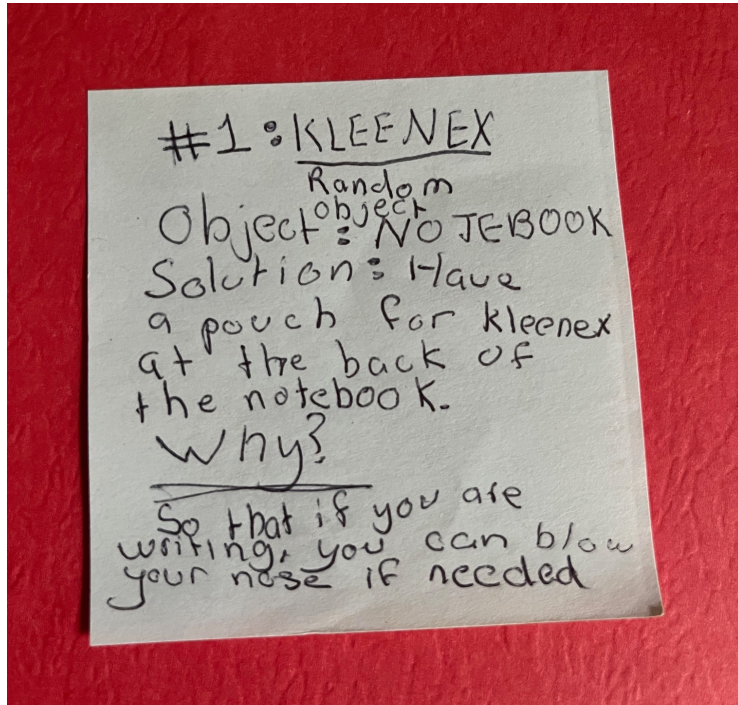 #1: KLEENEX
Random
object
Object: NOTEBOOK
Solution: Have
a pouch for kleenex
at the back of
the notebook.
Why?
So that if you are
writing, you can blow
your nose if needed